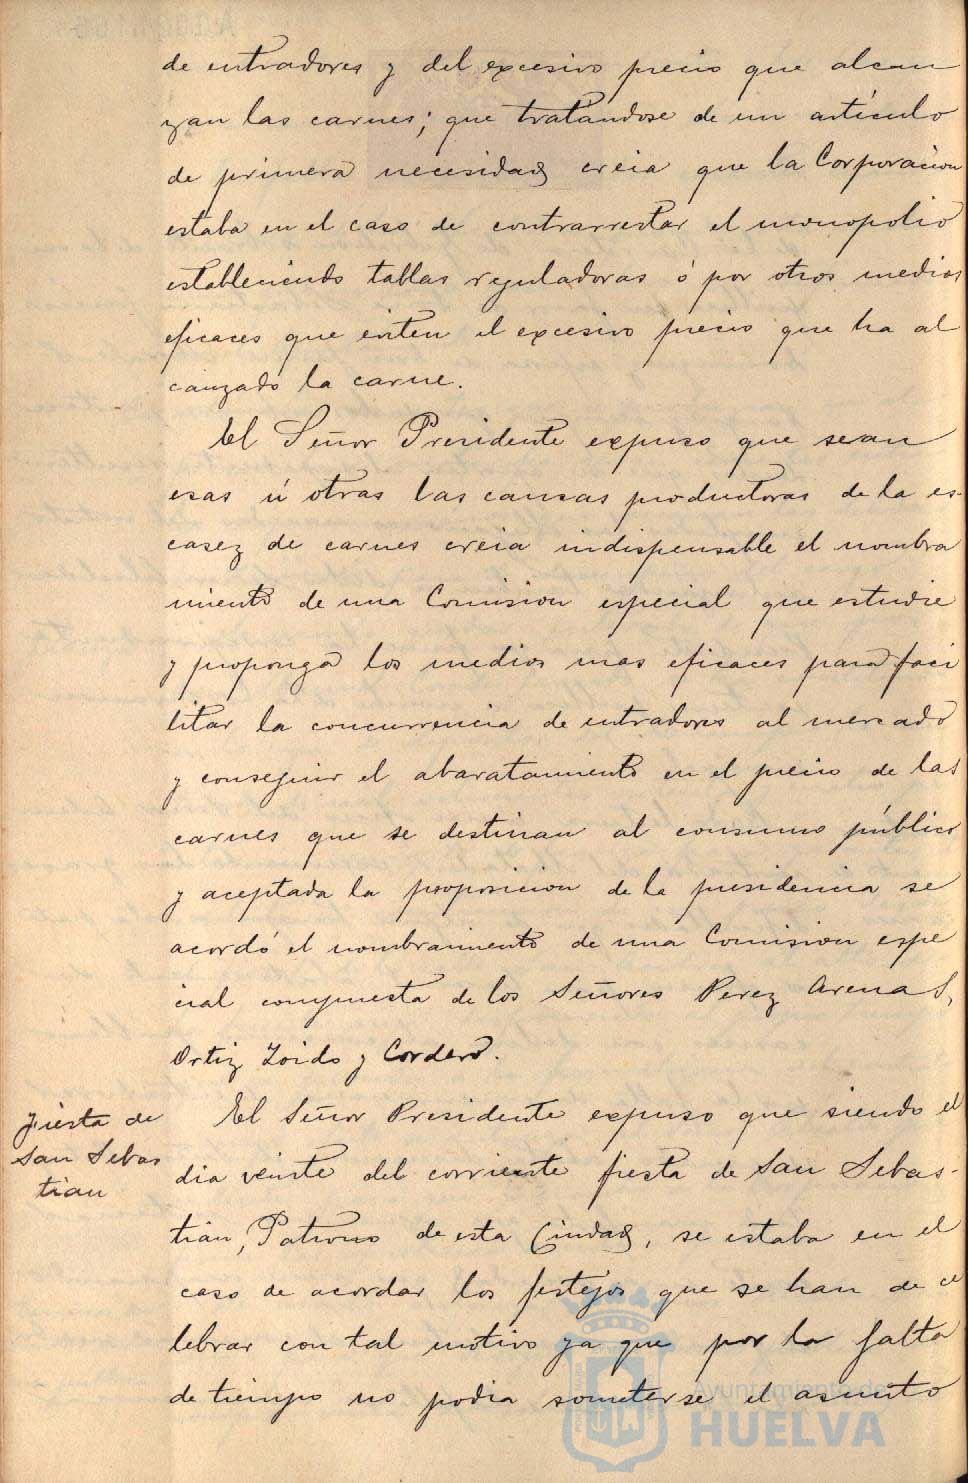 de entradores y del excesivo precio que alcan
zan las carnes; que tratandose de un artículo
de primera necesidad creia que la Corporacion
estaba en el caso de contrarrestar el monopolio
estableciendo tablas reguladoras ó por otros medios
eficaces que eviten el excesivo precio que ha al
canzado la carne.
El Señor Presidente expuso que sean
esas ú otras las causas productoras de la es-
casez de carnes creia indispensable el nombra
miento de una Comision especial que estudie
y proponga los medios mas eficaces para faci
litar la concurrencia de entradores al mercado
y conseguir el abaratamiento en el precio de las
carnes que se destinan al consumo público
y aceptada la proposicion de la presidencia se
acordó el nombramiento de una Comision espe
cial compuesta de los Señores Perez Arenas,
Ortiz Zoido y Cordero.
Fiesta de
San Sebas
tian
El Señor Presidente expuso que siendo el
dia veinte del corriente fiesta de San Sebas-
tian, Patrono de esta Ciudad, se estaba en el
caso de acordar los festejos que se han de ce
lebrar con tal motivo ya que por la falta
de tiempo no podia someterse el asunto
Ayuntamiento de
HUELVA